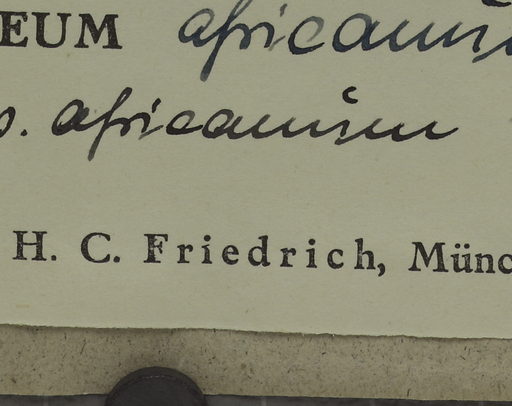 EUM africanum
s. africanum
H. C. Friedrich, Münc